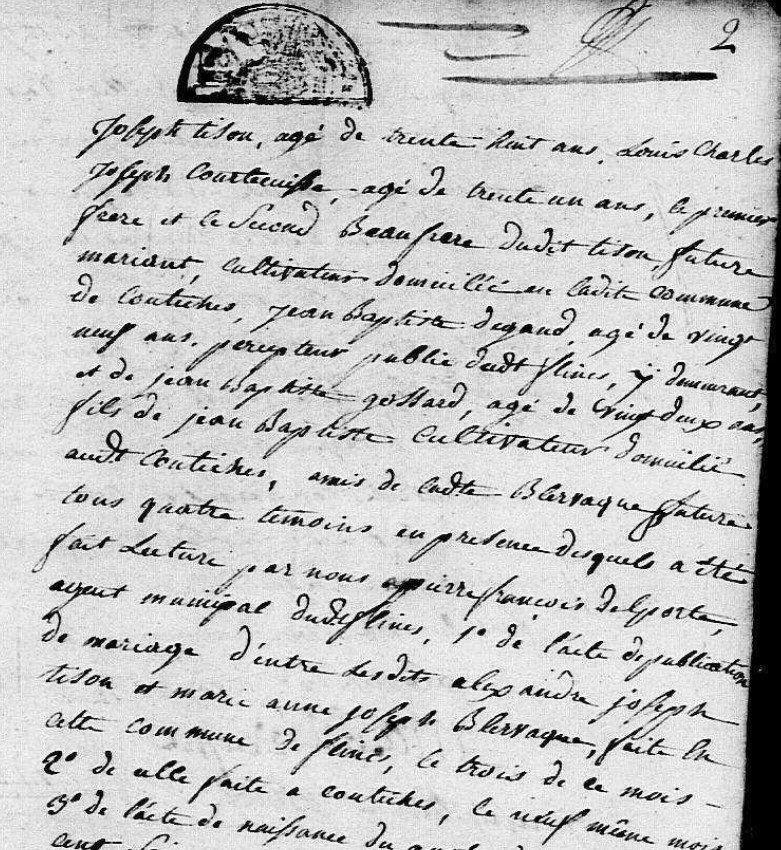 2
Joseph tison, agé de trente huit ans, Louis Charles
Joseph Courtecuisse, agé de trente un ans, le premier
frere et le Second Beaufrere dudit tison, future
mariant, cultivateur domicilié en ladite Commune
de coutiches, jean Baptiste degand, agé de vingt
neuf ans, percepteur public dudt flines, y demeurant,
et de jean Baptiste gossard, agé de vingt deux ans,
fils de jean Baptiste Cultivateur domicilié
audt Coutiches, amis de ladte Blervaque future
tous quatre temoins en presence desquels a été
fait Lecture par nous pierre françois Delporte,
agent municipal dudt flines, 1o de l'acte de publication
de mariage d'entre Lesdits alexandre joseph
tison et marie anne joseph Blervaque, faite en
cette commune de flines, le trois de ce mois -
2o de celle faite a coutiches, le neuf même mois
3o de l'acte de naissance du
cent